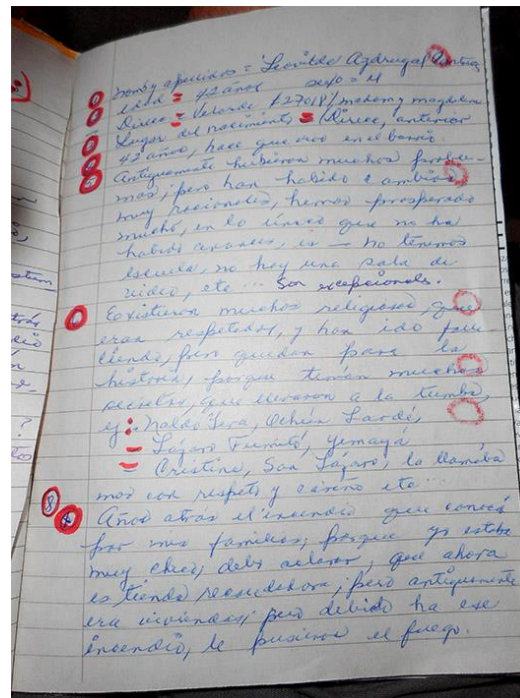 Nomb y apellidos = Leovildo Azdrugal
edad = 42 años sexo = M
Direc = Velarde #27018/ madan y magdalena
Lugar del nacimiento = Direcc, anterior
42 años, hace que vivo en el barrio.
Antiguamente hubieron muchos proble-
mas; pero han habido cambios
muy racionales, hemos prosperado
mucho, en lo único que no ha
habido avances, es — no tenemos
escuela, no hay una sala de
video, etc... Son excepcionales.
Existieron muchos religiosos, que
eran respetados, y han ido falle-
ciendo, pero quedan para la
historia, porque tenían muchos
secretos, que llevaron a la tumba,
ej: Naldo Lardé,
- Lázaro Yemayá
= Cristina, San Lázaro, la llamába
mos con respeto y cariño etc...
8 Años atrás el incendio que conocí
por mis familias; porque yo estaba
muy chico, debo aclarar, que ahora
es tienda recaudadora; pero antiguamente
era viviendas; pero debido ha ese
incendio, le pusieron el fuego.